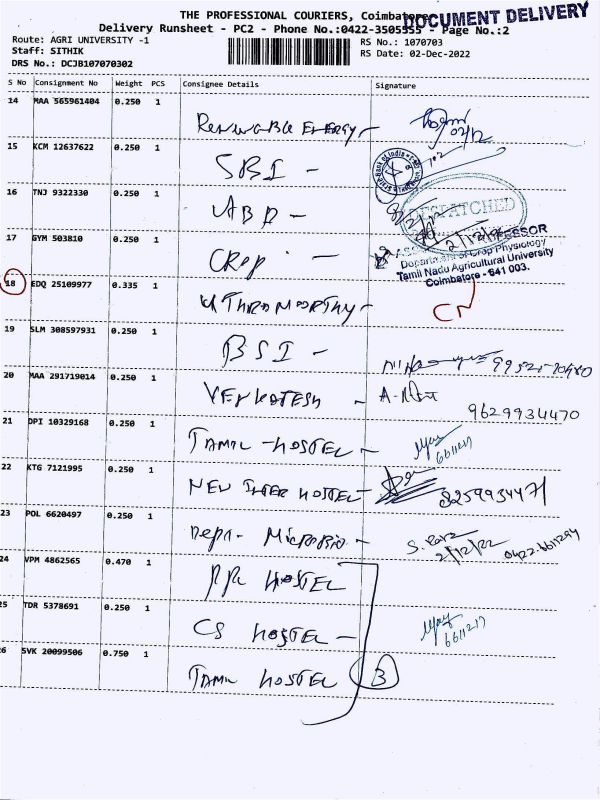 THE PROFESSIONAL COURIERS, Coimbatore
DOCUMENT DELIVERY
Delivery Runsheet - PC2 - Phone No.:0422-3505555 - Page No.:2
Route: AGRI UNIVERSITY -1
RS No.: 1070703
Staff: SITHIK
RS Date: 02-Dec-2022
DRS No.: DCJB107070302
S No Consignment No Weight PCS Consignee Details Signature
14 MAA 565961404 0.250 1
Renewable Energy -
02/12
15 KCM 12637622 0.250 1
SBI -
State Bank of India
16 TNJ 9322330 0.250 1
ABD -
DESPATCHED
2/12/22
17 GYM 503810 0.250 1
CROP -
PROFESSOR
Department of Crop Physiology
Tamil Nadu Agricultural University
Coimbatore - 641 003.
18 EDQ 25109977 0.335 1
UTHRAMOORTHY -
CN
19 SLM 308597931 0.250 1
BSI -
20 MAA 291719014 0.250 1
VENKATESH -
9629934470
21 DPI 10329168 0.250 1
TAMIL - HOSTEL -
6611217
22 KTG 7121995 0.250 1
NEW INTER HOSTEL -
8259934471
23 POL 6620497 0.250 1
Dept - MicroBio -
2/12/22
0422-6611294
24 VPM 4862565 0.470 1
PPR HOSTEL
25 TDR 5378691 0.250 1
CS HOSTEL -
6611217
26 SVK 20099506 0.750 1
TAMIL HOSTEL
3